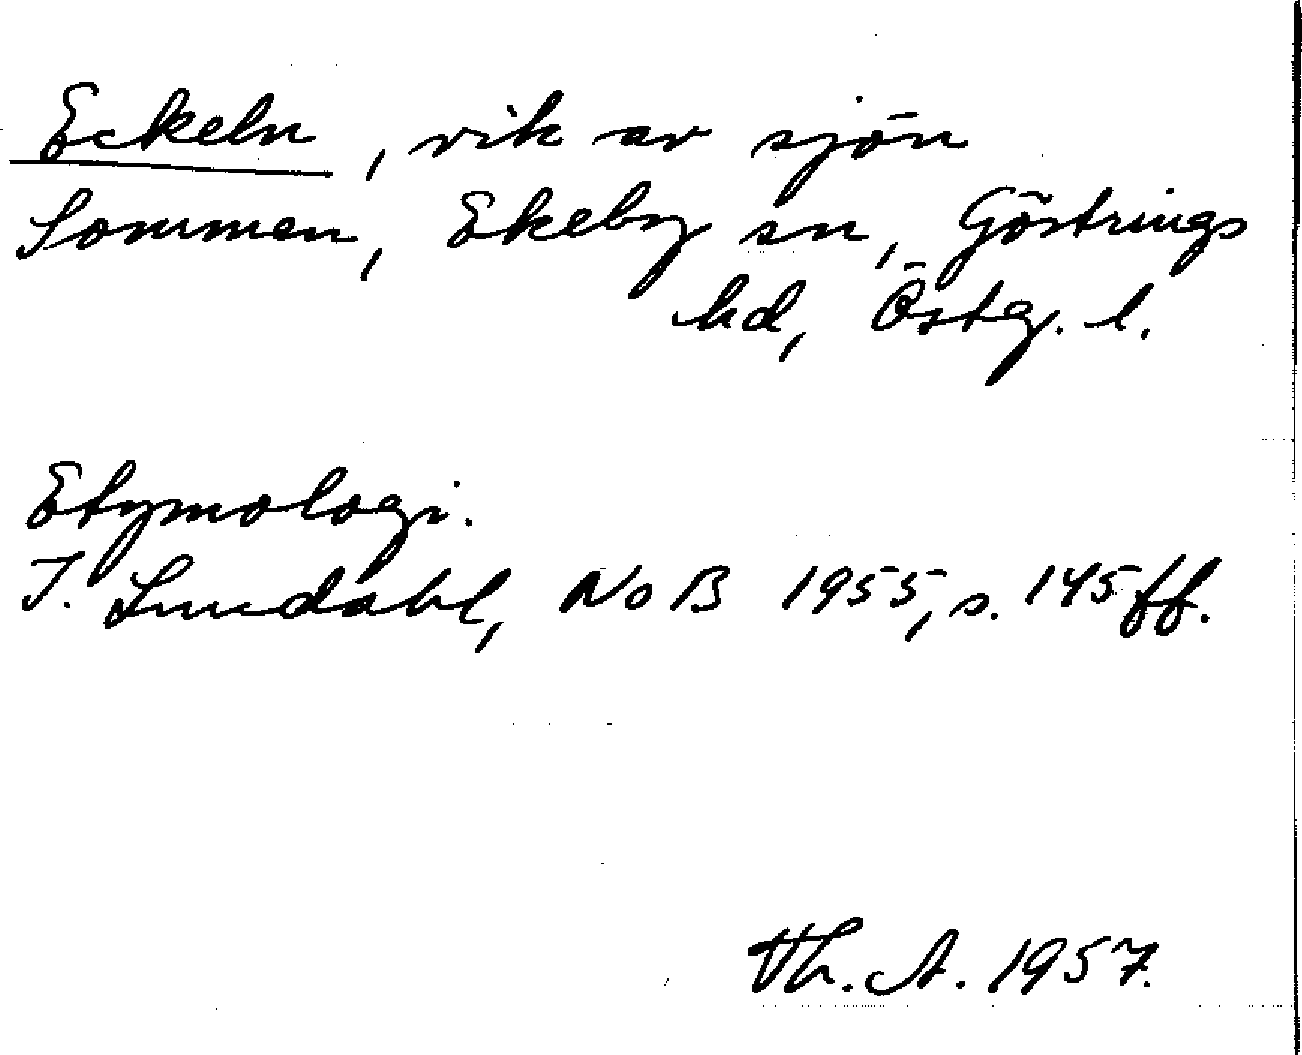 Eckeln, vik av sjön
Sommen, Ekeby sn, Göstrings
hd, Östg. l.
Etymologi.
I. Lundahl, NoB 1955, s. 145 ff.
Th. A. 1957.